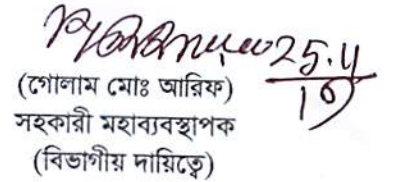 25.4
19
(গোলাম মোঃ আরিফ)
সহকারী মহাব্যবস্থাপক
(বিভাগীয় দায়িত্বে)